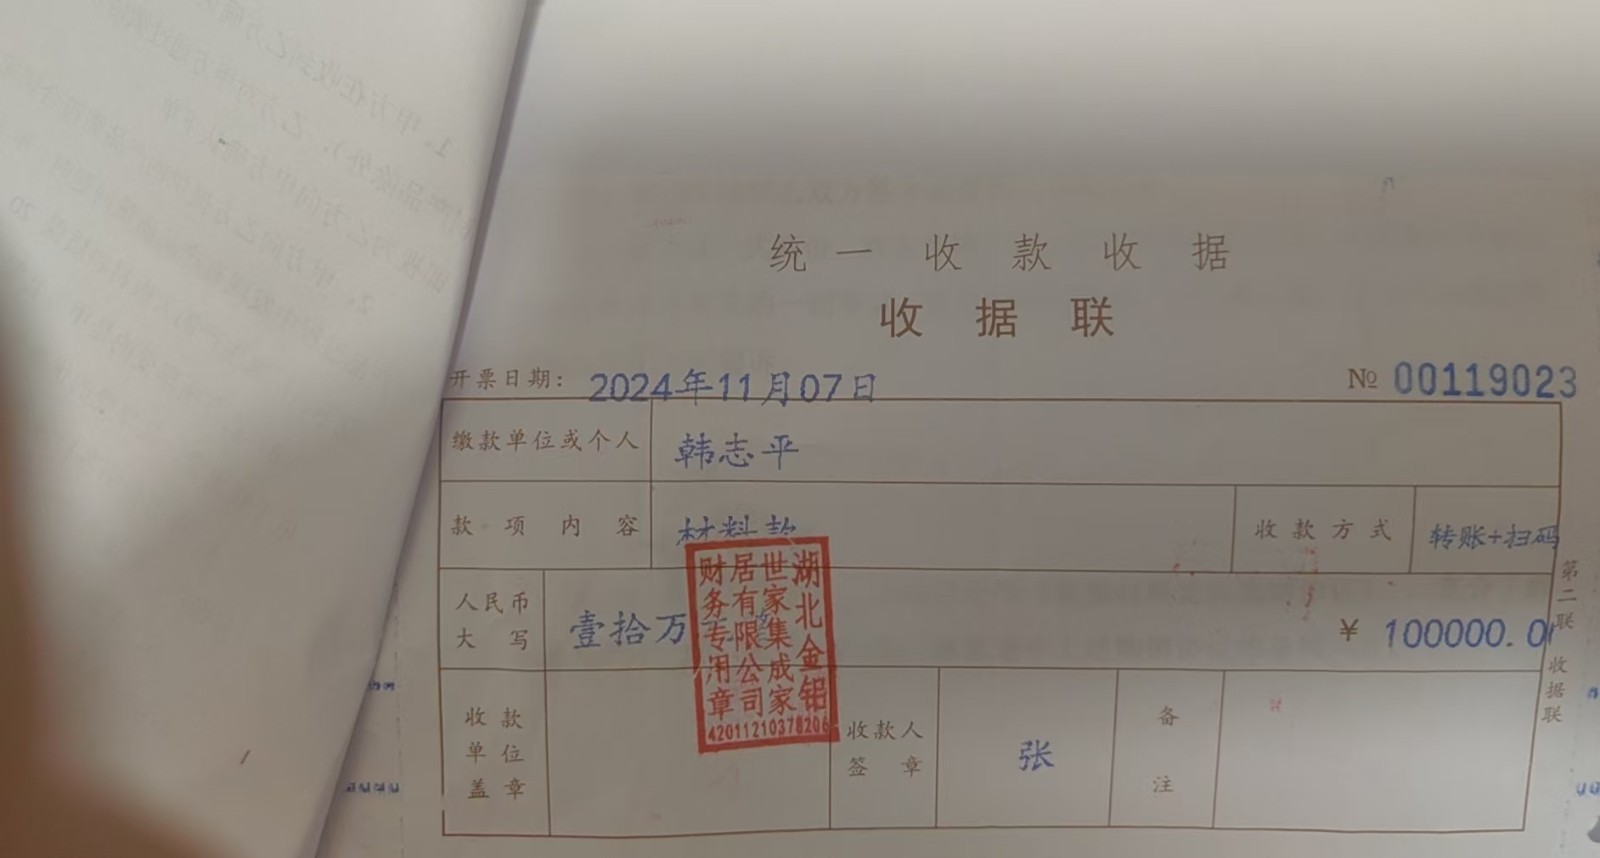 统一收款收据
收据联
开票日期： 2024年11月07日
№ 00119023
缴款单位或个人 韩志平
款项内容 材料款 收款方式 转账+扫码
人民币大写 壹拾万 ¥ 100000.0
收款单位盖章 收款人签章 张 备注
湖北金铝
世家集成家
居有限公司
财务专用章
4201121037820
第二联 收据联
1、甲方在收到乙方
2、甲方向乙方提供的产品